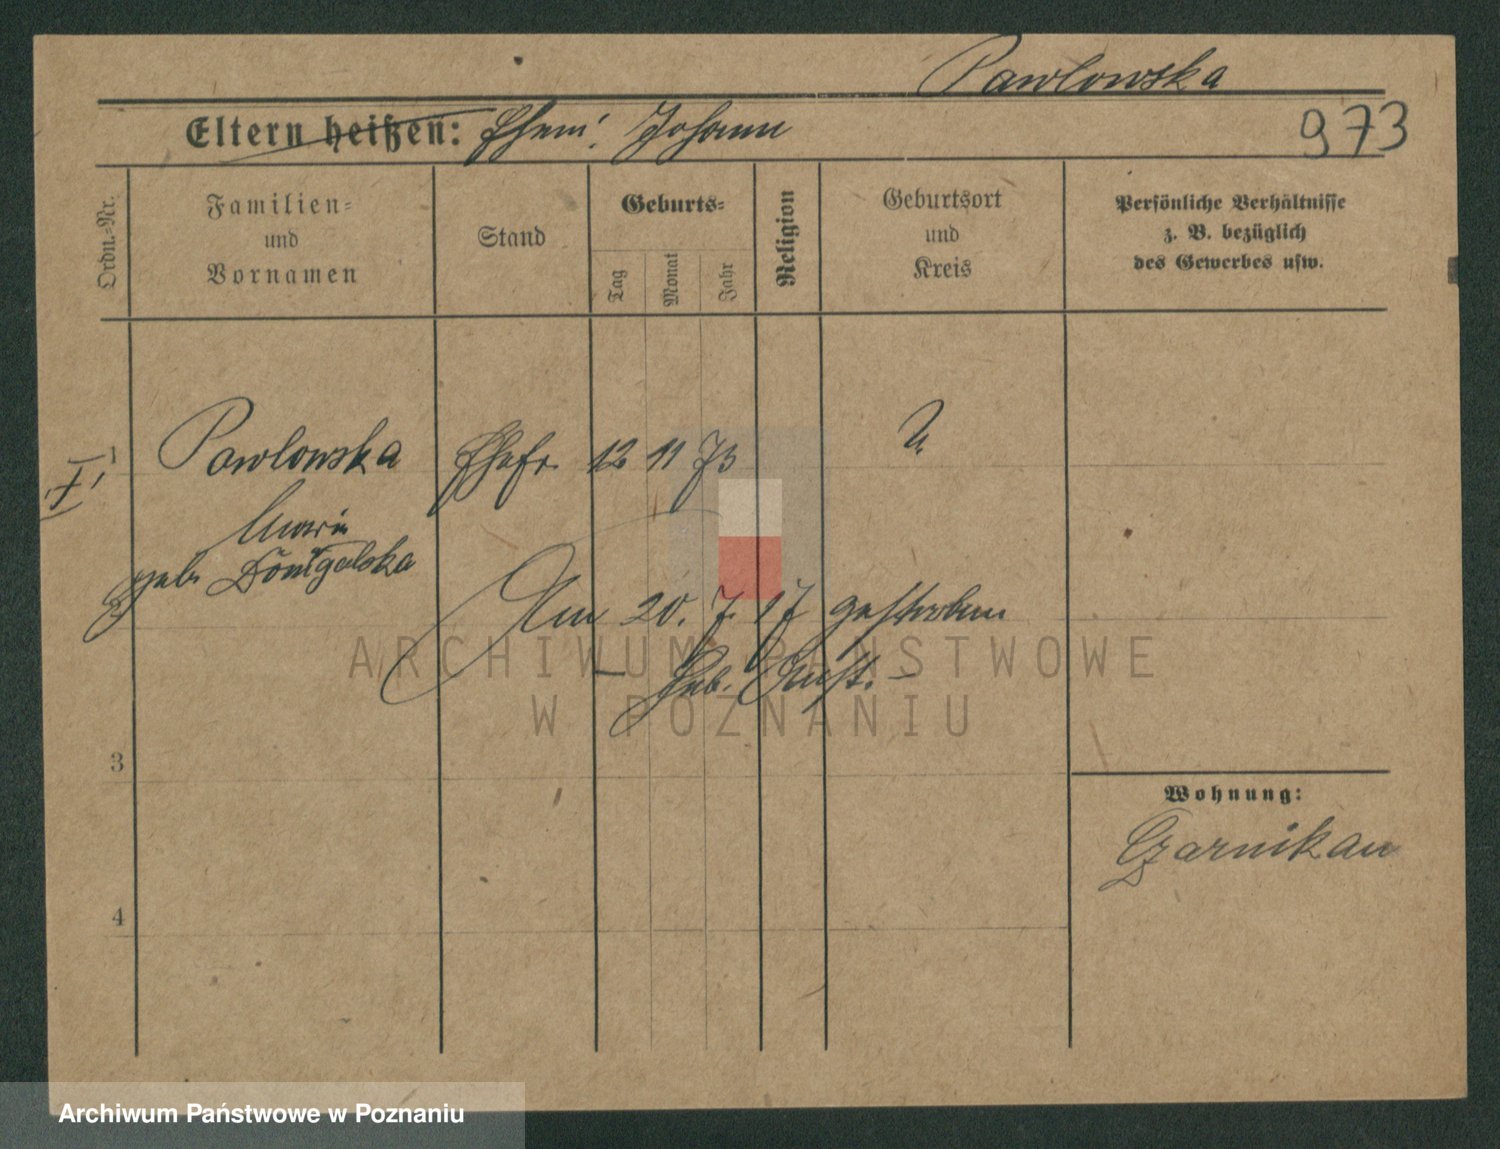 Pawlowska
Eltern heißen: Ehem. Johann
973
Ordn.-Nr.
Familien-
und
Vornamen
Stand
Geburts-
Tag
Monat
Jahr
Religion
Geburtsort
und
Kreis
Persönliche Verhältnisse
z. B. bezüglich
des Gewerbes usw.
1 Pawlowska Ehefr. 12 11 73
Maria
geb.
2
Am 20. 7. 17 gestorben
ARCHIWUM PAŃSTWOWE
W POZNANIU
3
Wohnung:
Czarnikau
4
Archiwum Państwowe w Poznaniu